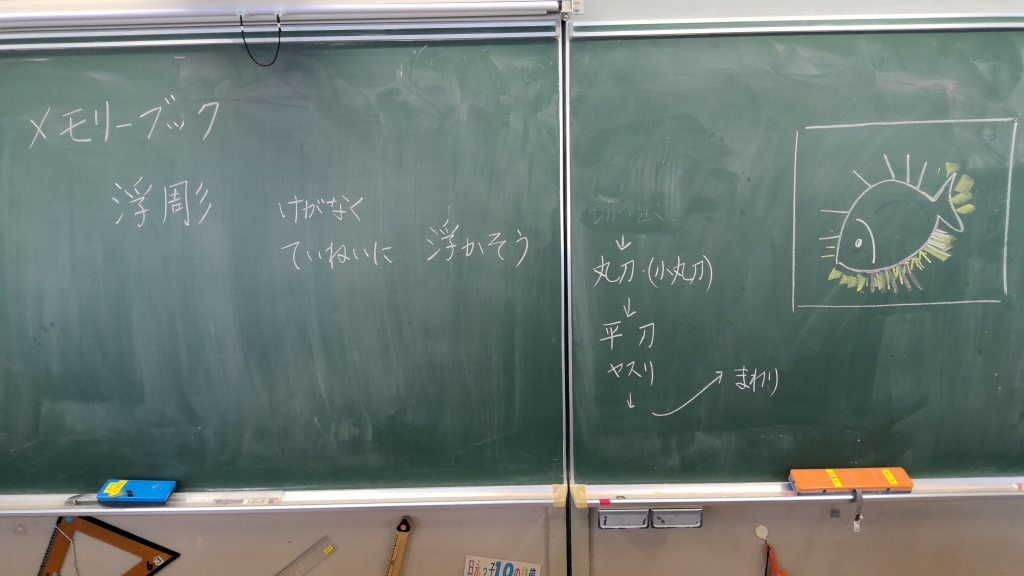 メモリーブック
浮彫
けがなく
ていねいに 浮かそう
↓
丸刀・(小丸刀)
↓
平刀
ヤスリ
↓
まわり